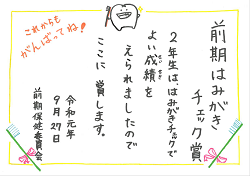 前期はみがき
チェック賞
2年生ははみがきチェックで
よい成績を
えられましたので
ここに賞します。
令和元年
9月27日
前期保健委員会
これからも
がんばってね!